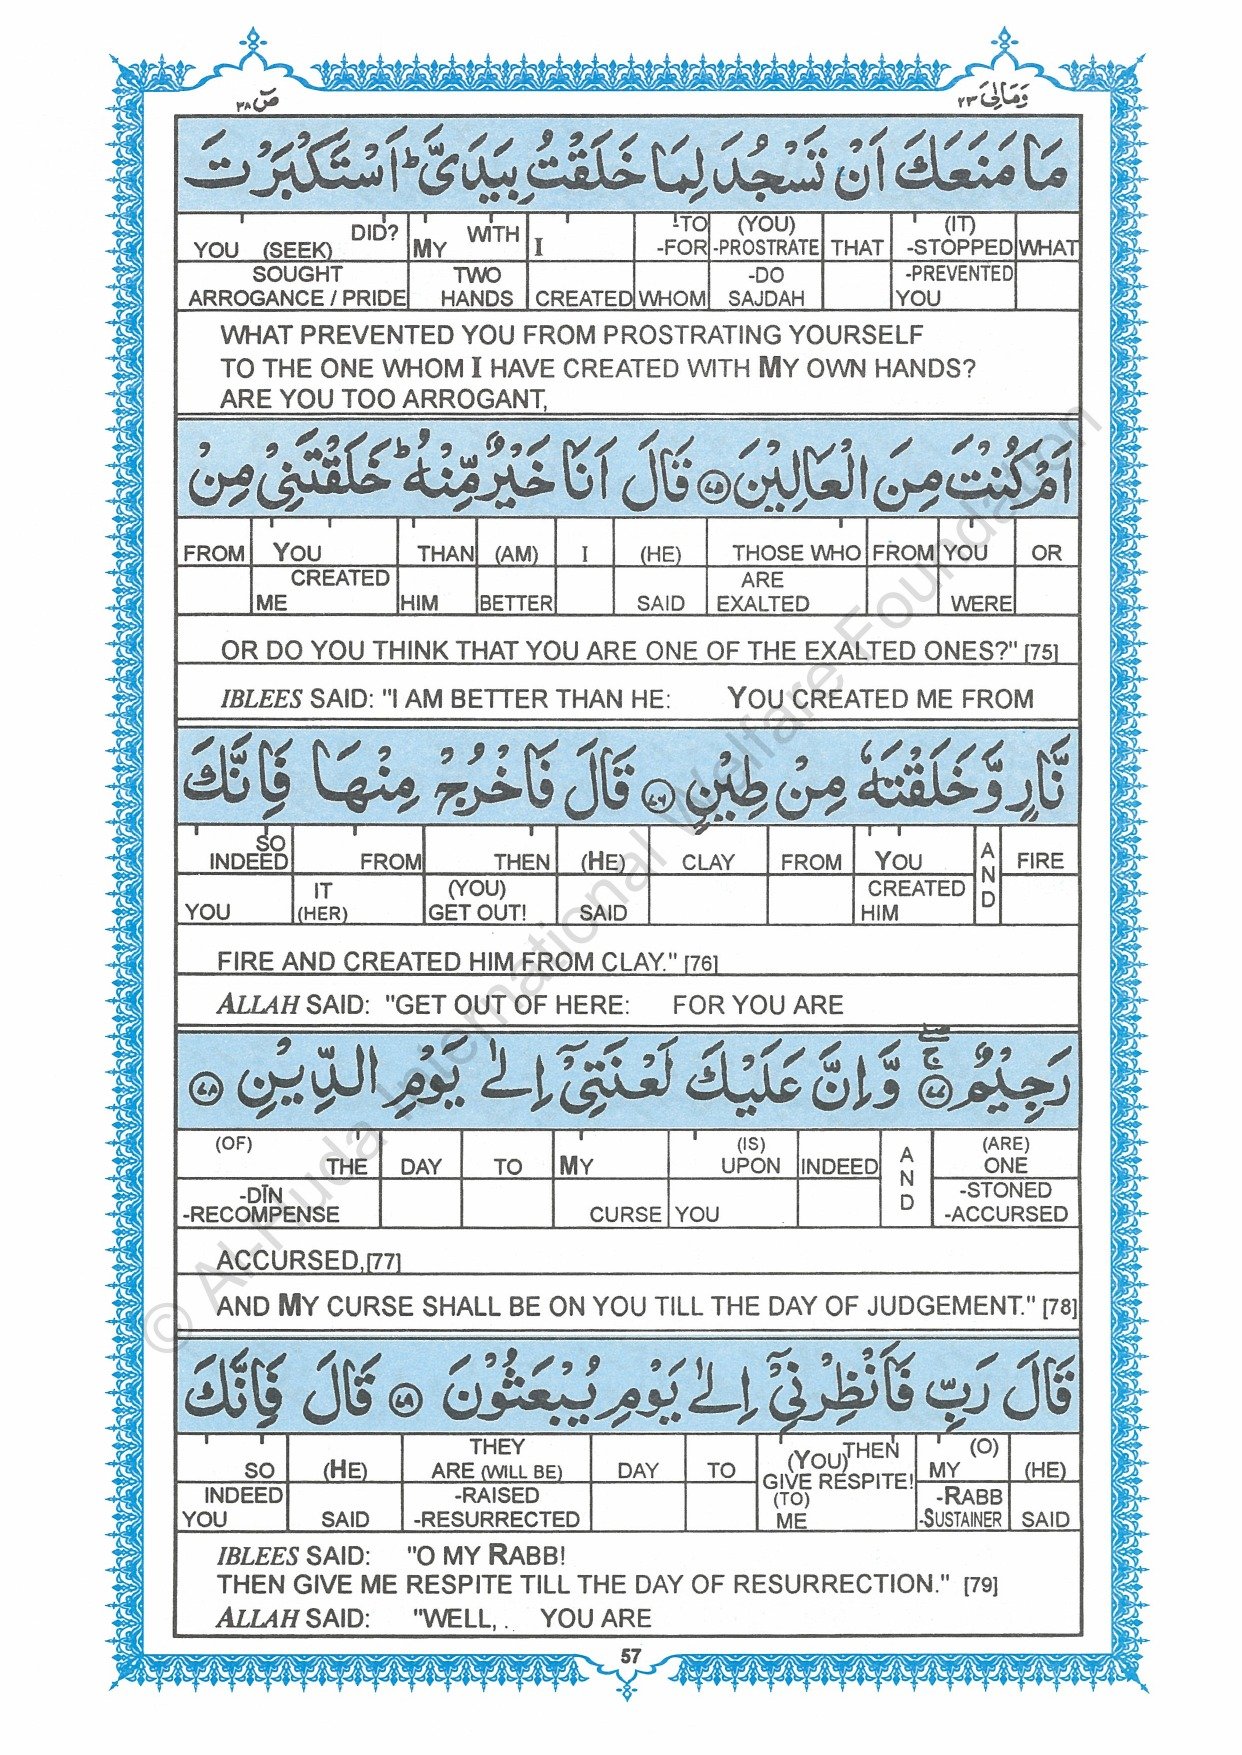 وَمَالِىَ ٢٣
صٓ ٣٨
مَا مَنَعَكَ اَنْ تَسْجُدَ لِمَا خَلَقْتُ بِيَدَىَّ ؕ اَسْتَكْبَرْتَ
WHAT (IT) -STOPPED THAT (YOU) -PROSTRATE -TO -FOR I WITH MY DID? YOU (SEEK)
-PREVENTED YOU -DO SAJDAH WHOM CREATED TWO HANDS SOUGHT ARROGANCE / PRIDE
WHAT PREVENTED YOU FROM PROSTRATING YOURSELF
TO THE ONE WHOM I HAVE CREATED WITH MY OWN HANDS?
ARE YOU TOO ARROGANT,
اَمْ كُنْتَ مِنَ الْعَالِيْنَ ﴿٧٥﴾ قَالَ اَنَا خَيْرٌ مِّنْهُ ؕ خَلَقْتَنِىْ مِنْ
OR YOU FROM THOSE WHO (HE) I (AM) THAN YOU FROM
WERE ARE EXALTED SAID BETTER HIM CREATED ME
OR DO YOU THINK THAT YOU ARE ONE OF THE EXALTED ONES?" [75]
IBLEES SAID: "I AM BETTER THAN HE: YOU CREATED ME FROM
نَّارٍ وَّخَلَقْتَهٗ مِنْ طِيْنٍ ﴿٧٦﴾ قَالَ فَاخْرُجْ مِنْهَا فَاِنَّكَ
FIRE AND YOU FROM CLAY (HE) THEN FROM SO INDEED
CREATED HIM SAID (YOU) GET OUT! IT (HER) YOU
FIRE AND CREATED HIM FROM CLAY." [76]
ALLAH SAID: "GET OUT OF HERE: FOR YOU ARE
رَجِيْمٌ ﴿٧٧﴾ وَّاِنَّ عَلَيْكَ لَعْنَتِىْٓ اِلٰى يَوْمِ الدِّيْنِ ﴿٧٨﴾
(ARE) ONE AND INDEED (IS) UPON MY TO DAY (OF) THE
-STONED -ACCURSED YOU CURSE -DĪN -RECOMPENSE
ACCURSED,[77]
AND MY CURSE SHALL BE ON YOU TILL THE DAY OF JUDGEMENT." [78]
قَالَ رَبِّ فَاَنْظِرْنِىْٓ اِلٰى يَوْمِ يُبْعَثُوْنَ ﴿٧٩﴾ قَالَ فَاِنَّكَ
(HE) (O) MY THEN (YOU) GIVE RESPITE! TO DAY THEY ARE (WILL BE) (HE) SO
SAID -RABB -SUSTAINER (TO) ME -RAISED -RESURRECTED SAID INDEED YOU
IBLEES SAID: "O MY RABB!
THEN GIVE ME RESPITE TILL THE DAY OF RESURRECTION." [79]
ALLAH SAID: "WELL, . YOU ARE
57
© Al-Huda International Welfare Foundation